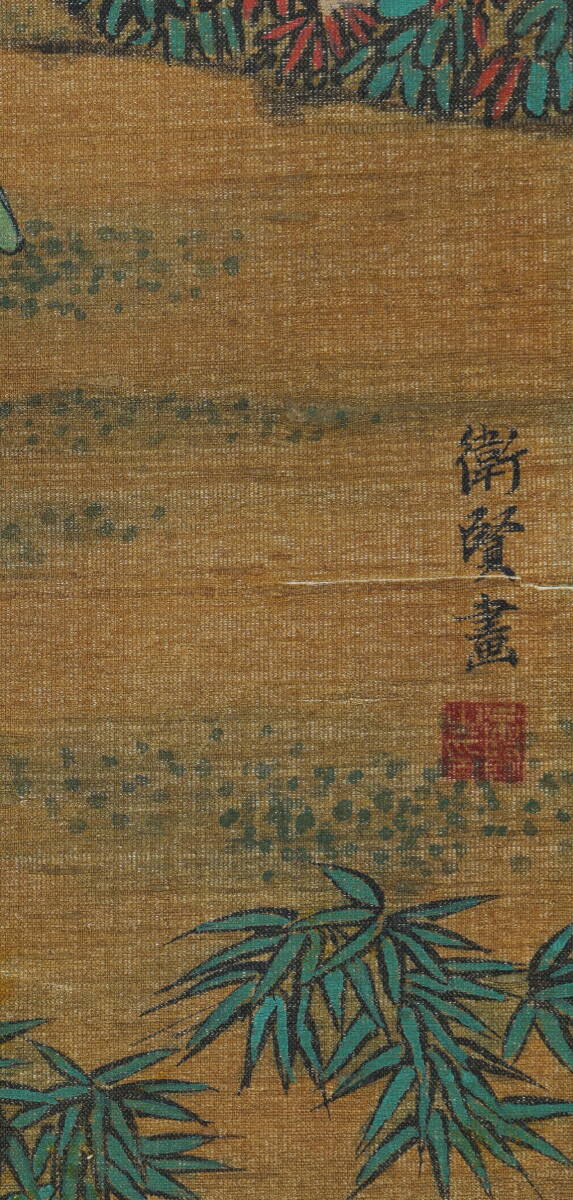 衛賢畫